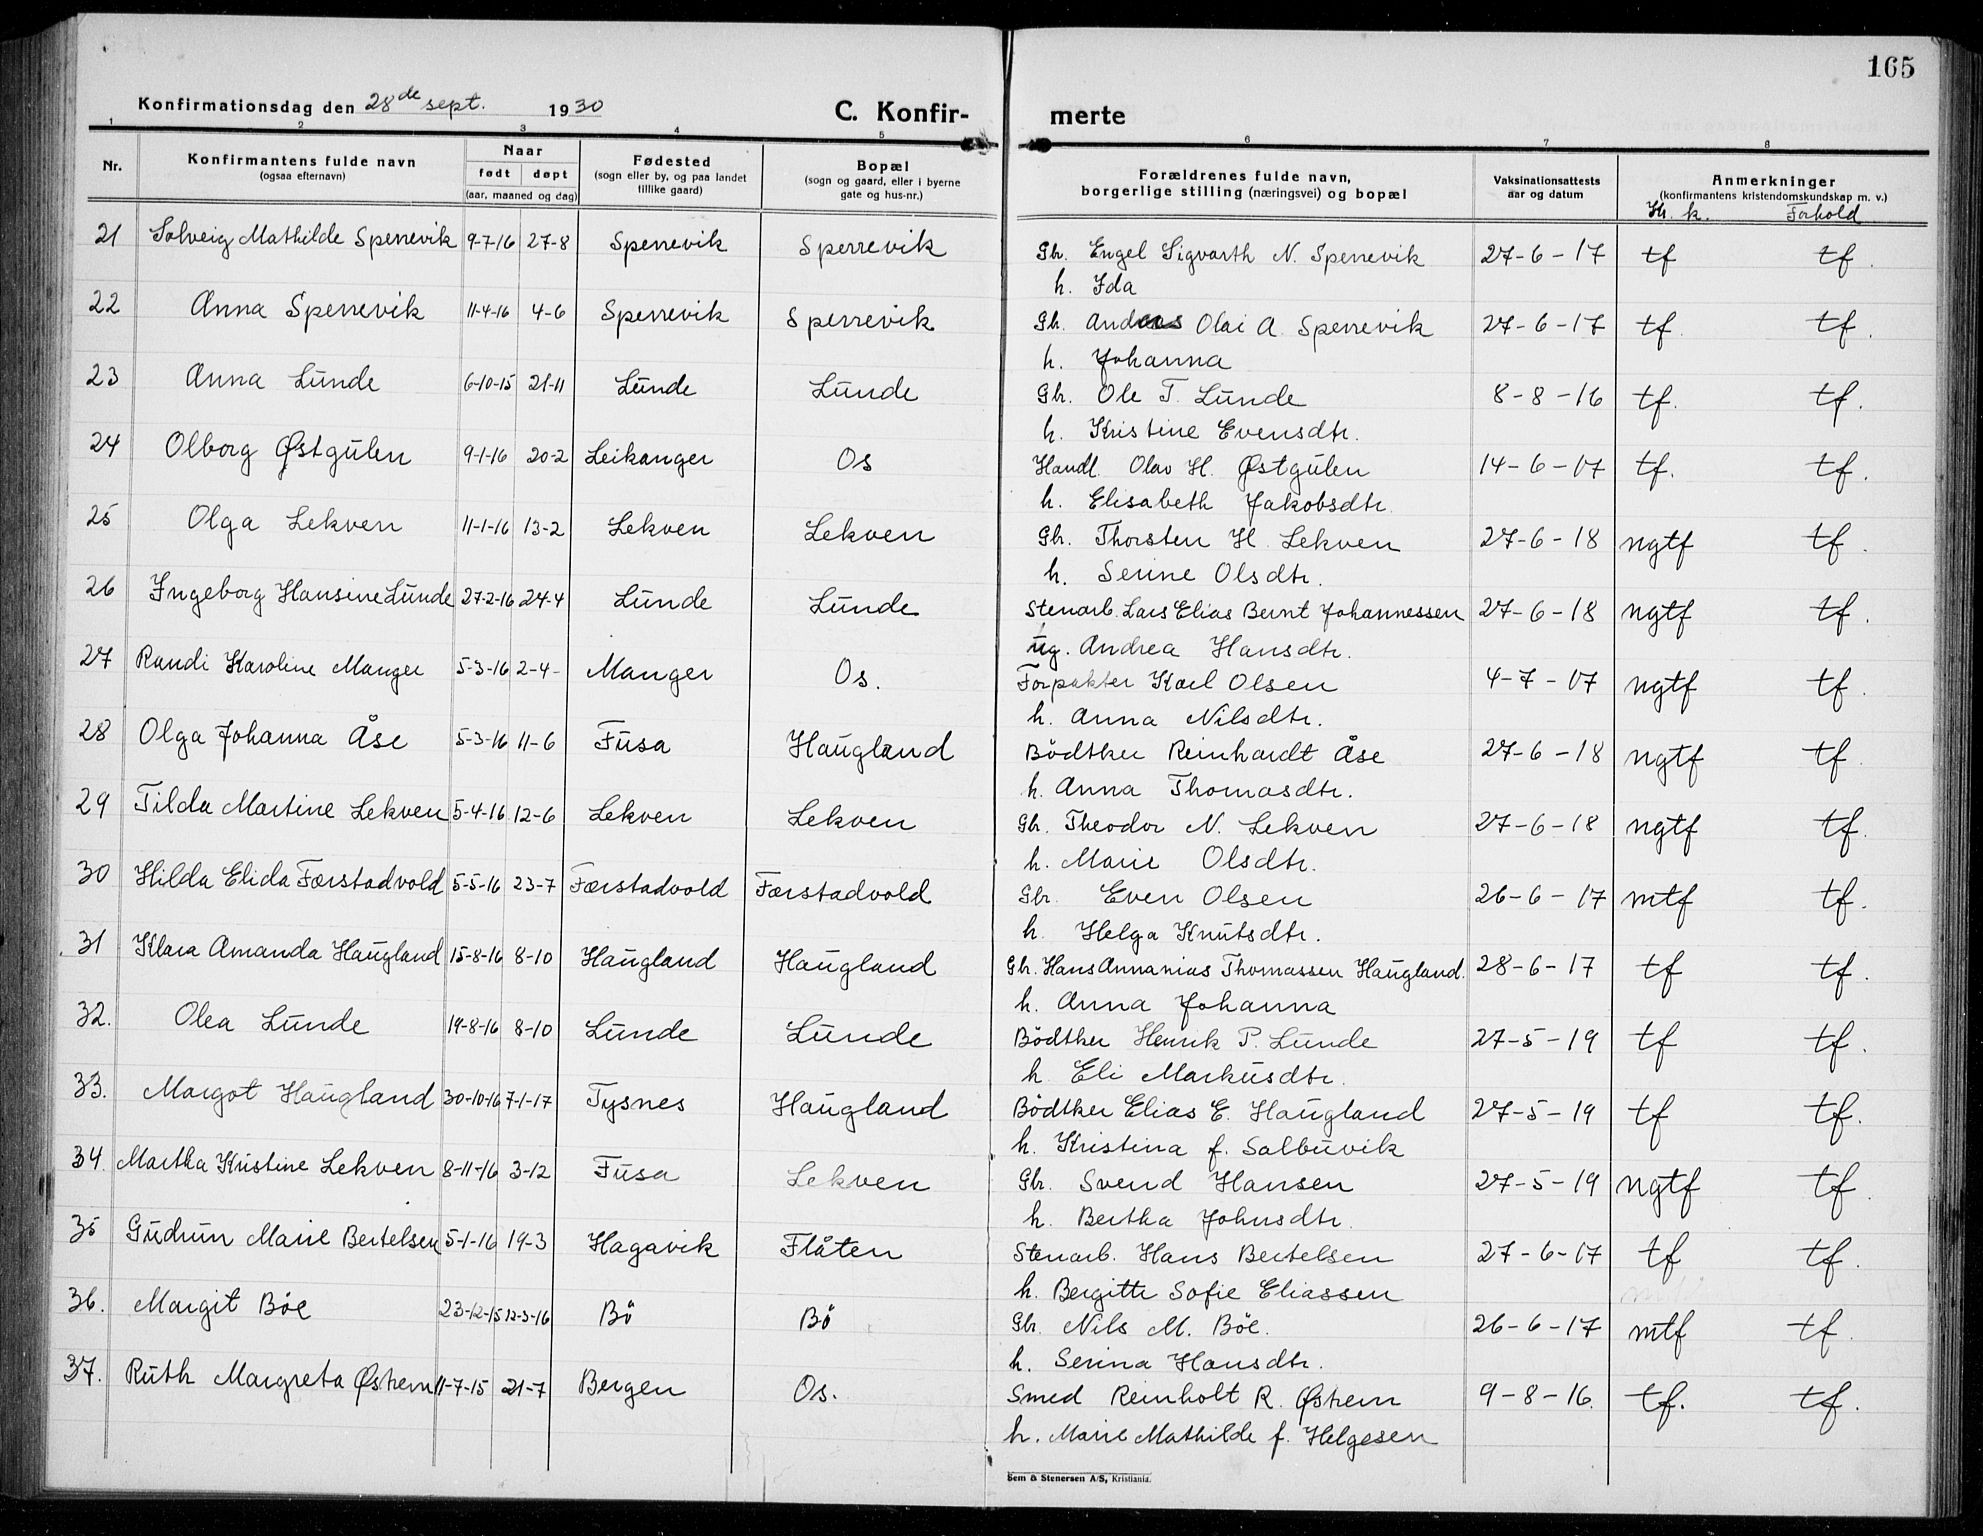 165
Konfirmationsdag den 28de sept. 1930
C. Konfir- merte
1 2 3 4 5 6 7 8
Nr.
Konfirmantens fulde navn
(ogsaa efternavn)
Naar
født døpt
(aar, maaned og dag)
Fødested
(sogn eller by, og paa landet
tillike gaard)
Bopæl
(sogn og gaard, eller i byerne
gate og hus-nr.)
Forældrenes fulde navn,
borgerlige stilling (næringsvei) og bopæl
Vaksinationsattests
aar og datum
Anmerkninger
(konfirmantens kristendomskundskap m. v.)
Kr. k. Forhold
21 Solveig Mathilde Sperrevik 9-7-16 27-8 Sperrevik Sperrevik Gbr. Engel Sigvarth N. Sperrevik 27-6-17 tf tf.
h. Ida
22 Anna Sperrevik 11-4-16 4-6 Sperrevik Sperrevik Gb. Anders Olai A. Sperrevik 27-6-17 tf. tf.
h. Johanna
23 Anna Lunde 6-10-15 21-11 Lunde Lunde Gbr. Ole T. Lunde 8-8-16 tf. tf.
h. Kristine Evensdtr.
24 Olborg Østgulen 9-1-16 20-2 Leikanger Os Handl. Olav H. Østgulen 14-6-17 tf. tf.
h. Elisabeth Jakobsdtr.
25 Olga Lekven 11-1-16 13-2 Lekven Lekven Gbr. Thorsten H. Lekven 27-6-18 ngtf tf.
h. Serine Olsdtr.
26 Ingeborg Hansine Lunde 27-2-16 24-4 Lunde Lunde Stenarb. Lars Elias Bernt Johannessen 27-6-18 ngtf tf.
ug. Andrea Hansdtr.
27 Randi Karoline Manger 5-3-16 2-4- Manger Os. Forpakter Karl Olsen 4-7-17 ngtf tf.
h. Anna Nilsdtr.
28 Olga Johanna Åse 5-3-16 11-6 Fusa Haugland Bödtker Reinhardt Åse 27-6-18 ngtf tf.
h. Anna Thomasdtr.
29 Tilda Martine Lekven 5-4-16 12-6 Lekven Lekven Gbr. Theodor N. Lekven 27-6-18 ngtf tf.
h. Marie Olsdtr.
30 Hilda Elida Førstadvold 5-5-16 23-7 Førstadvold Førstadvold Gbr. Even Olsen 26-6-17 mtf tf.
h. Helga Knutsdtr.
31 Klara Amanda Haugland 15-8-16 8-10 Haugland Haugland Gbr. Hans Annanias Thomassen Haugland. 28-6-17 tf tf.
h. Anna Johanna
32. Olea Lunde 19-8-16 8-10 Lunde Lunde Bödtker Henrik P. Lunde 27-5-19 tf tf.
h. Eli Markusdtr.
33. Margot Haugland 30-10-16 7-1-17 Tysnes Haugland Bödtker Elias E. Haugland 27-5-19 tf tf.
h. Kristina f. Salbuvik
34. Martha Kristine Lekven 8-11-16 3-12 Fusa Lekven Gbr. Svend Hansen 27-5-19 ngtf tf.
h. Bertha Johnsdtr.
35 Gudrun Marie Bertelsen 5-1-16 19-3 Hagavik Flåten Stenarb. Hans Bertelsen 27-6-17 tf tf.
h. Bergitte Sofie Eliassen
36. Margit Böe 23-12-15 12-3-16 Bö Bö Gbr. Nils M. Böe. 26-6-17 mtf tf.
h. Serina Hansdtr.
37. Ruth Margreta Østrem 11-7-15 21-7 Bergen Os. Smed Reinholt R. Østrem 9-8-16. tf. tf.
h. Marie Mathilde f. Helgesen
Sem & Stenersen A/S, Kristiania.